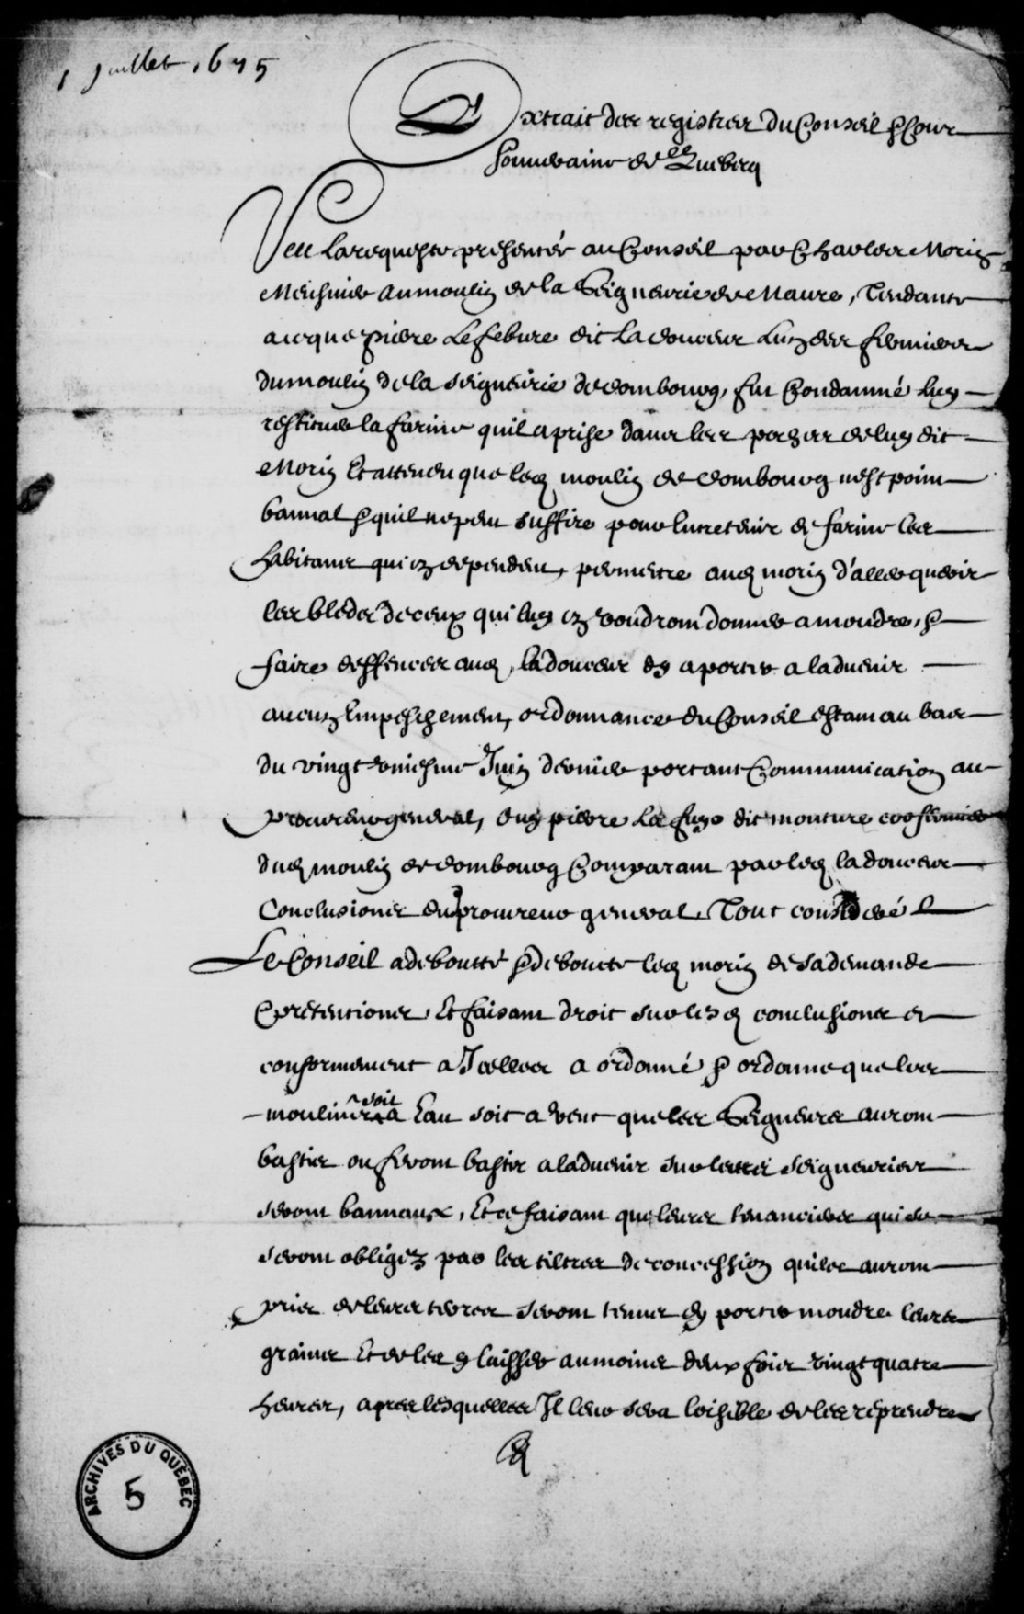 1 Juillet 1675
Extrait des registres du Conseil & Cour
Souueraine de Quebecq
Veu la requeste presentée au Conseil par Charles Morin
Meusnier au moulin de la Seigneurie de Maure, Tendante
a ce que pierre Lefebure dit la douceur l'un des fermiers
du moulin de la seigneurie de dombourg, fut Condamné luy
restituer la farine quil a prise dans les poches de luy dit
Morin Et attendu que led moulin de dombourg n'est point
bannal & quil ne peut suffire pour lentretenir de farine les
habitans qui en dependent, permettre aud morin d'aller querir
les bleds de ceux qui luy en voudront donner a moudre, &
faire deffences aud, ladouceur dy aporter a laduenir
aucun Empeschement, ordonnance du Conseil estant au bas
du vingt Juin dernier portant Communication au
procureur general, Ouy pierre dit mouture cofermier
dud moulin de dombourg Comparant par led ladouceur
Conclusions du procureur general, Tout consideré
Le Conseil a deboutté & deboute led morin de sa demande
& pretentions, Et faisant droit sur lesd conclusions et
conformement a Icelles a ordonné & ordonne que les
moulins soit a Eau soit a vent que les Seigneurs auront
bastis ou feront bastir a laduenir sur leurs seigneuries
seront bannaux, Et ce faisant que leurs tenanciers qui se
seront obligez par les tiltres de concession quils auront
pris de leurs terres seront tenus dy porter moudre leurs
grains Et de les y laisser au moins deux fois vingt quatre
heures, apres lesquelles Il leur sera loisible de les reprendre
ARCHIVES DU QUÉBEC
5